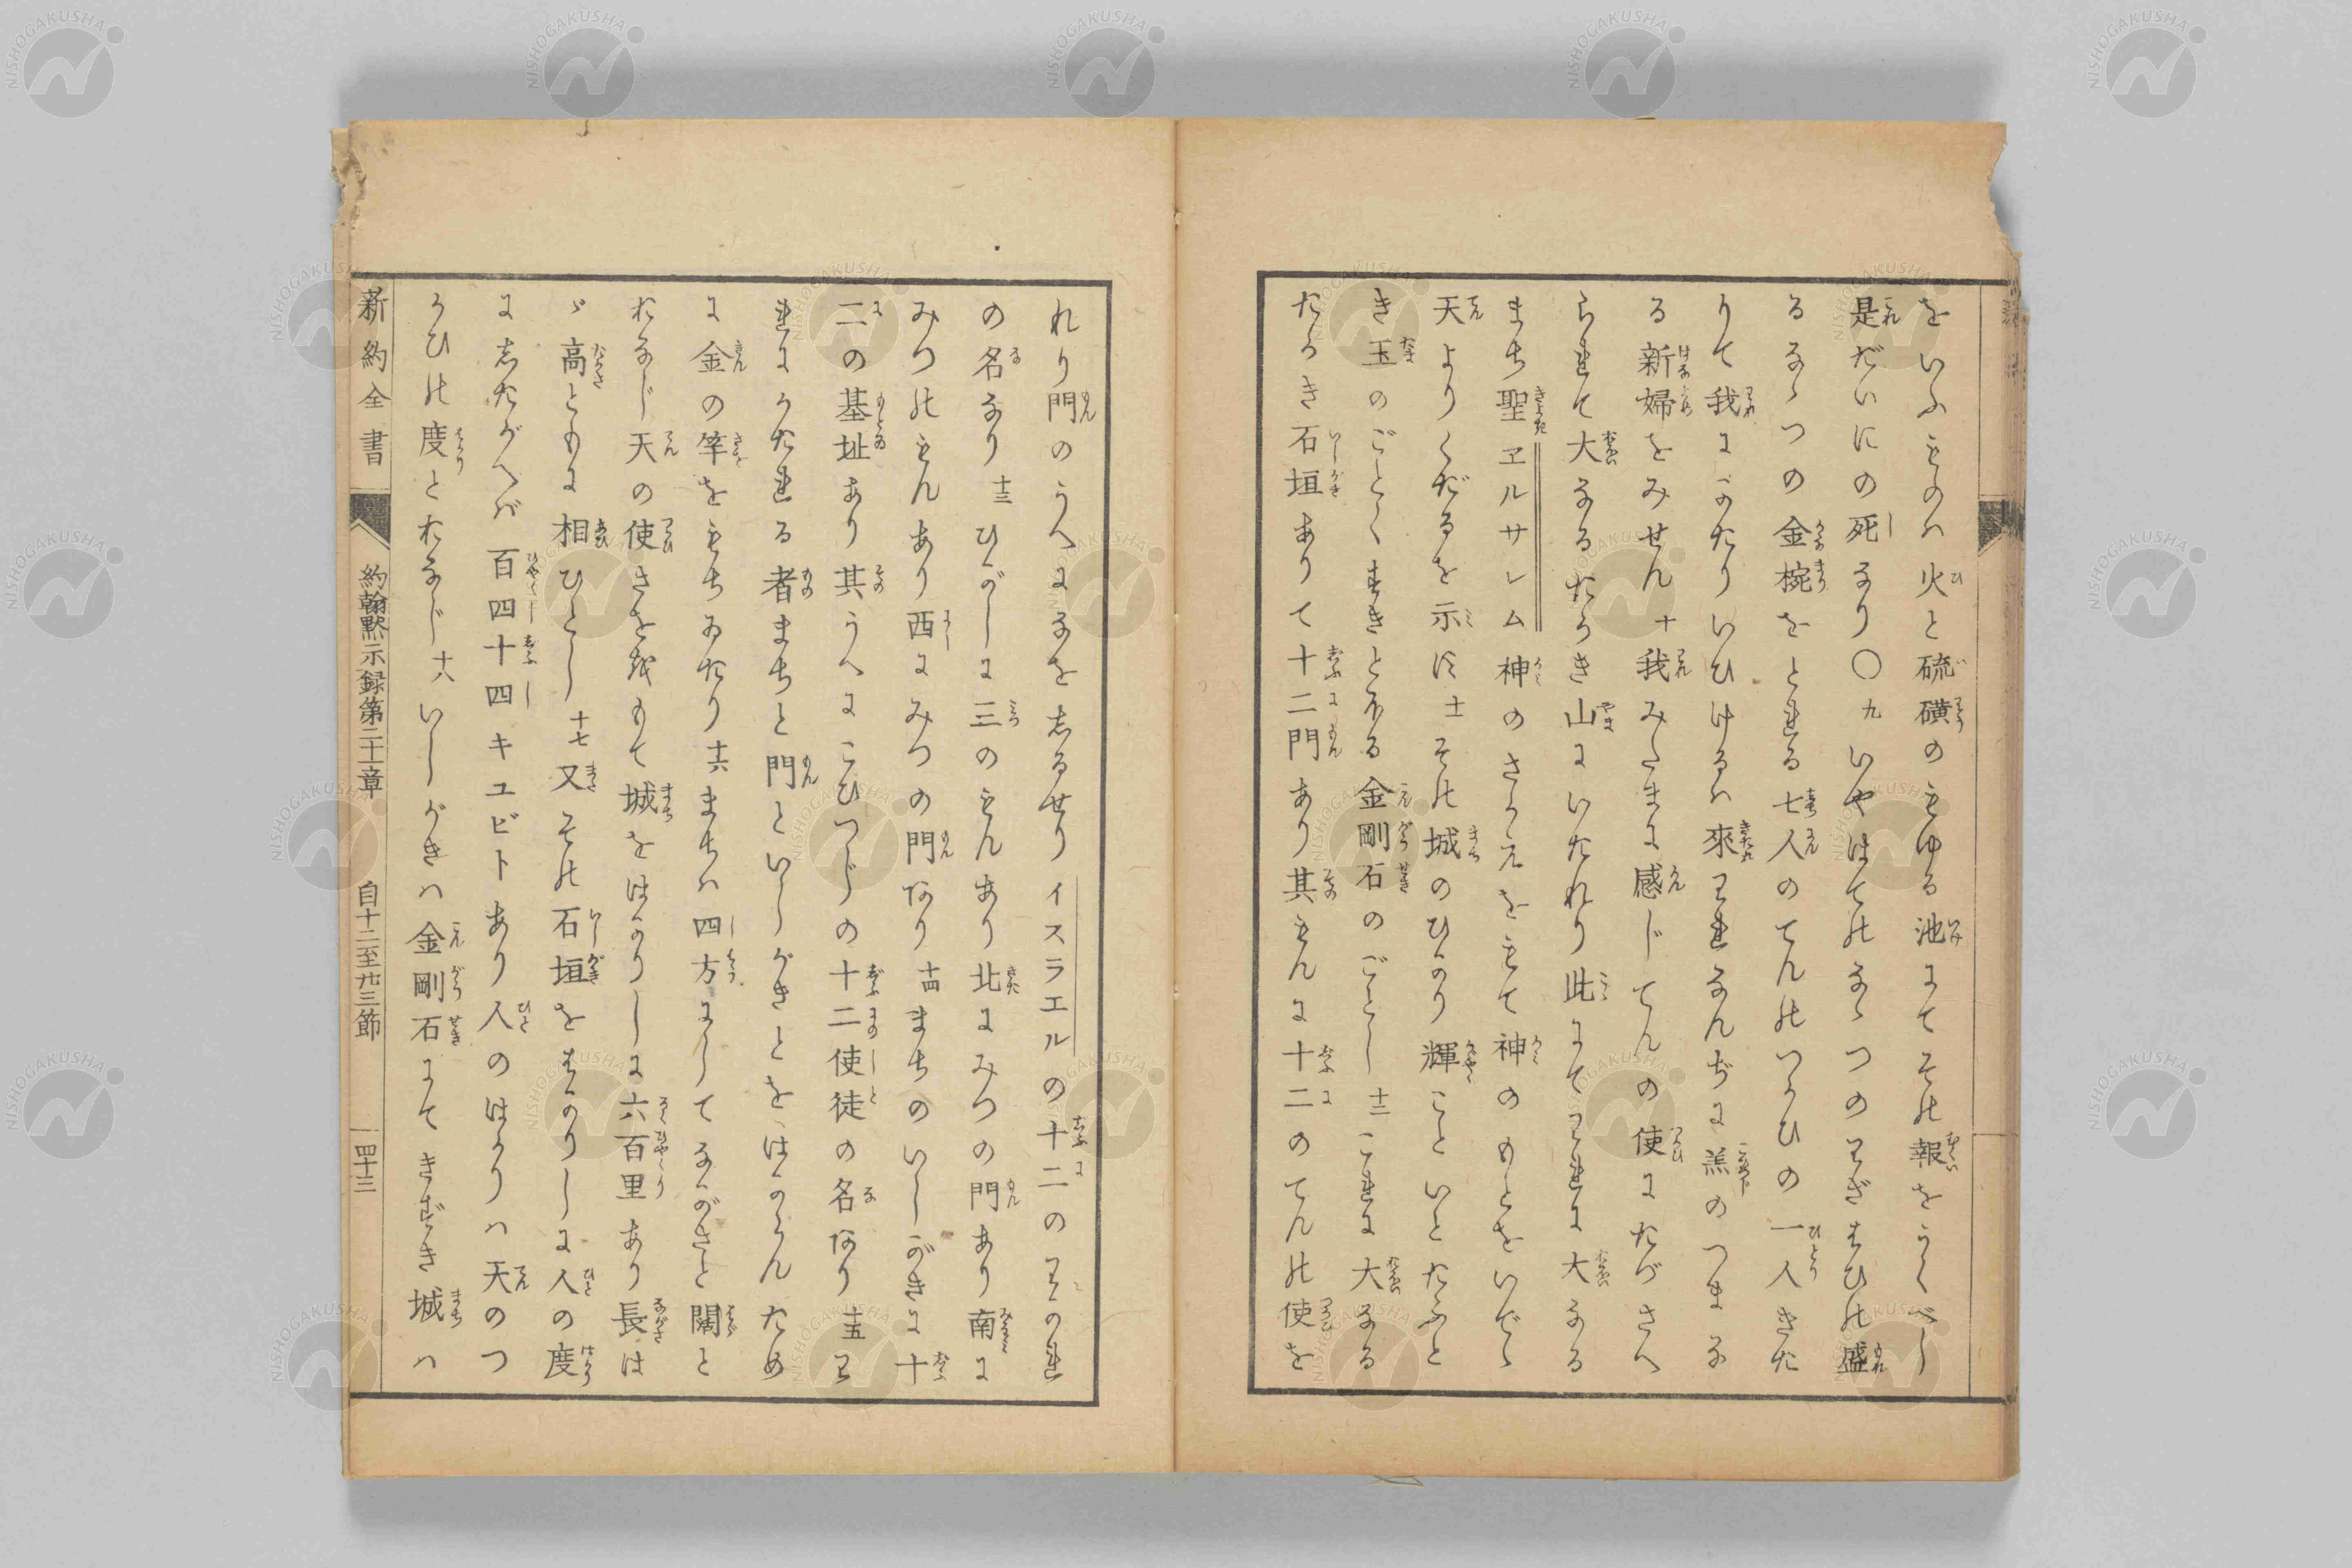 をいふものハ火と硫磺のもゆる池にてその報をうくべし
是だいにの死なり〇九いやはてのなゝつのわざはひの盛
るなゝつの金椀をとれる七人のてんのつかひの一人きた
りて我にかたりいひけるハ來われなんぢに羔のつまな
る新婦をみせん十我みたまに感じてんの使にたづさへ
られて大なるたかき山にいたれり此にてわれに大なる
まち聖ヱルサレム神のさかえをもて神のもとをいでゝ
天よりくだるを示す十一その城のひかり輝こといとたふと
き玉のごとくすきとほる金剛石のごとし十二これに大なる
たかき石垣ありて十二門あり其もんに十二のてんの使を
れり門のうへに名をしるせりイスラエルの十二のわかれ
の名なり十三ひがしに三のもんあり北にみつの門あり南に
みつのもんあり西にみつの門なり十四まちのいしがきに十
二の基址あり其うへにこひつじの十二使徒の名なり十五わ
れにかたれる者まちと門といしがきとをはからんため
に金の竿をもちゐたり十六まちハ四方にしてながさと闊と
おなじ天の使さををもて城をはかりしに六百里あり長は
ゞ高ともに相ひとし十七又その石垣をはかりしに人の度
にしたがへバ百四十四キユビトあり人のはかりハ天のつ
かひの度とおなじ十八いしがきハ金剛石にてきづき城ハ
新約全書 約翰黙示録第二十一章 自十二至廿三節 四十三
NISHOGAKUSHA